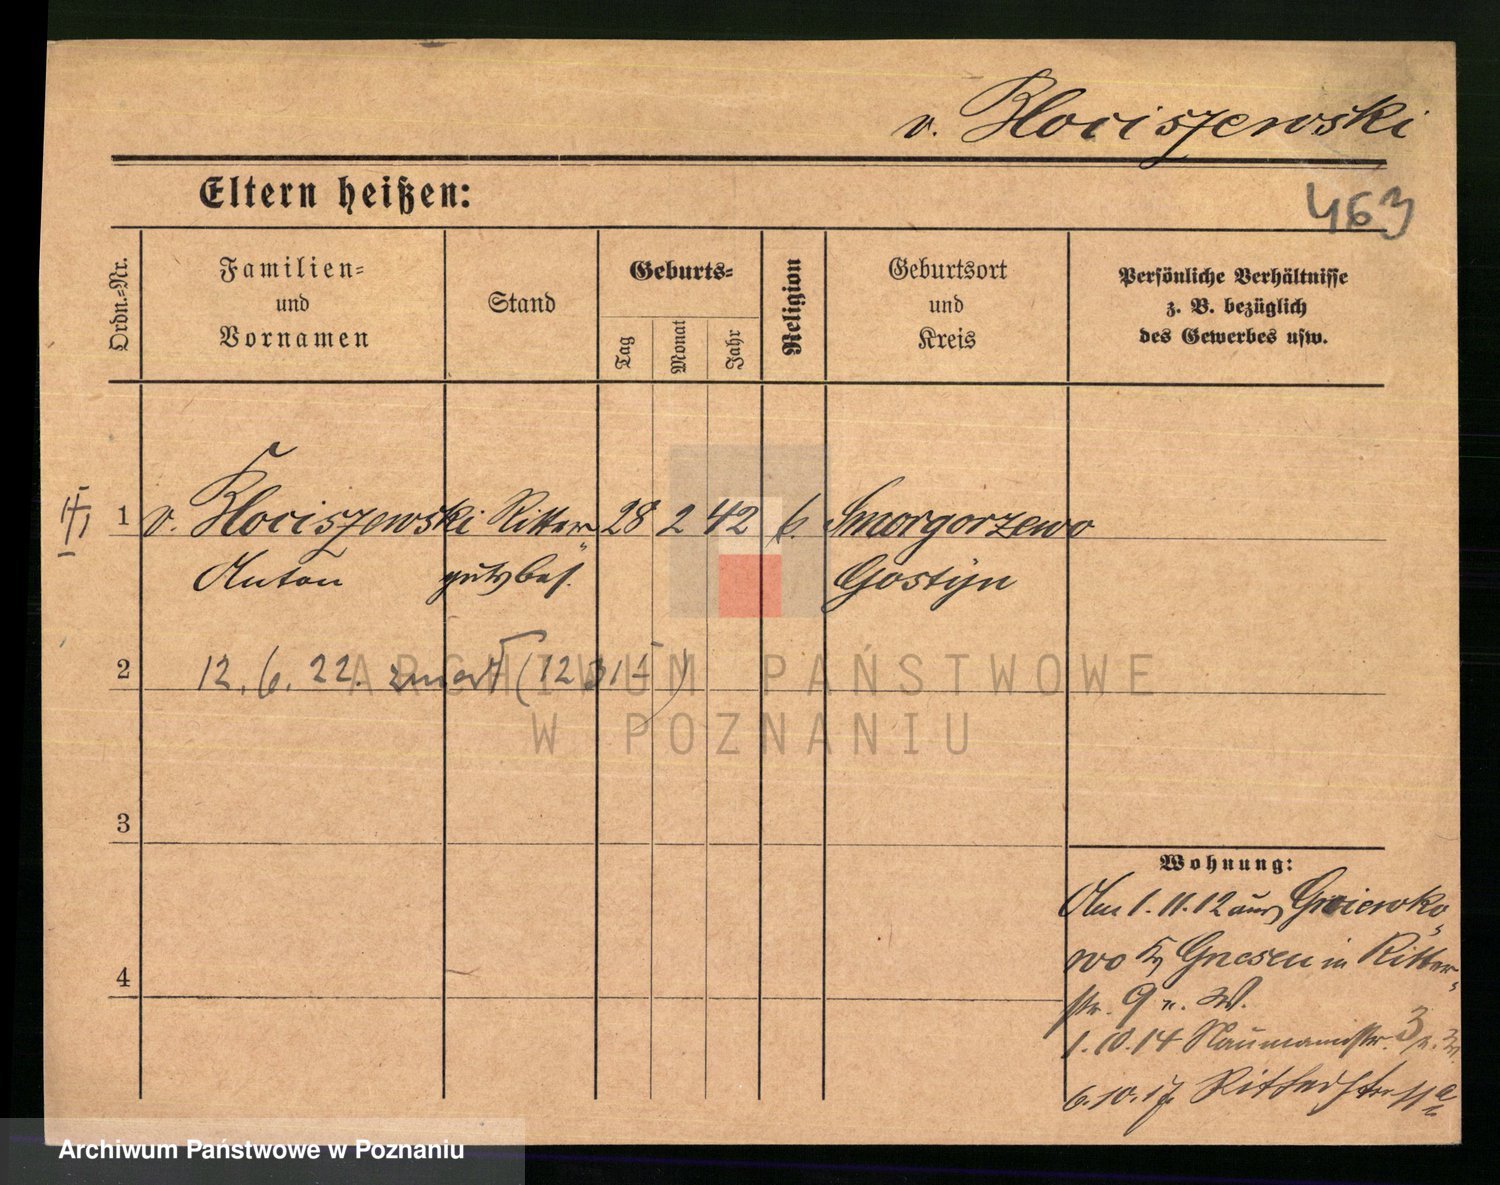 v. Kłociszewski
Eltern heißen:
463
Ordn.-Nr.
Familien-
und
Vornamen
Stand
Geburts-
Tag
Monat
Jahr
Religion
Geburtsort
und
Kreis
Persönliche Verhältnisse
z. B. bezüglich
des Gewerbes usw.
1 v. Kłociszewski Ritter- 28 2 42 k. Smorgorzewo
Anton gutsbes. Gostyn
2 12. 6. 22. zmarł (1231
3
4
Wohnung:
Am 1.11.12 aus Gniewko-
wo Kr. Gnesen in Ritter-
str. 9 u. W.
1.10.14 Naumannstr. 3
6.10.17 Ritterstr 11a
ARCHIWUM PAŃSTWOWE
W POZNANIU
Archiwum Państwowe w Poznaniu